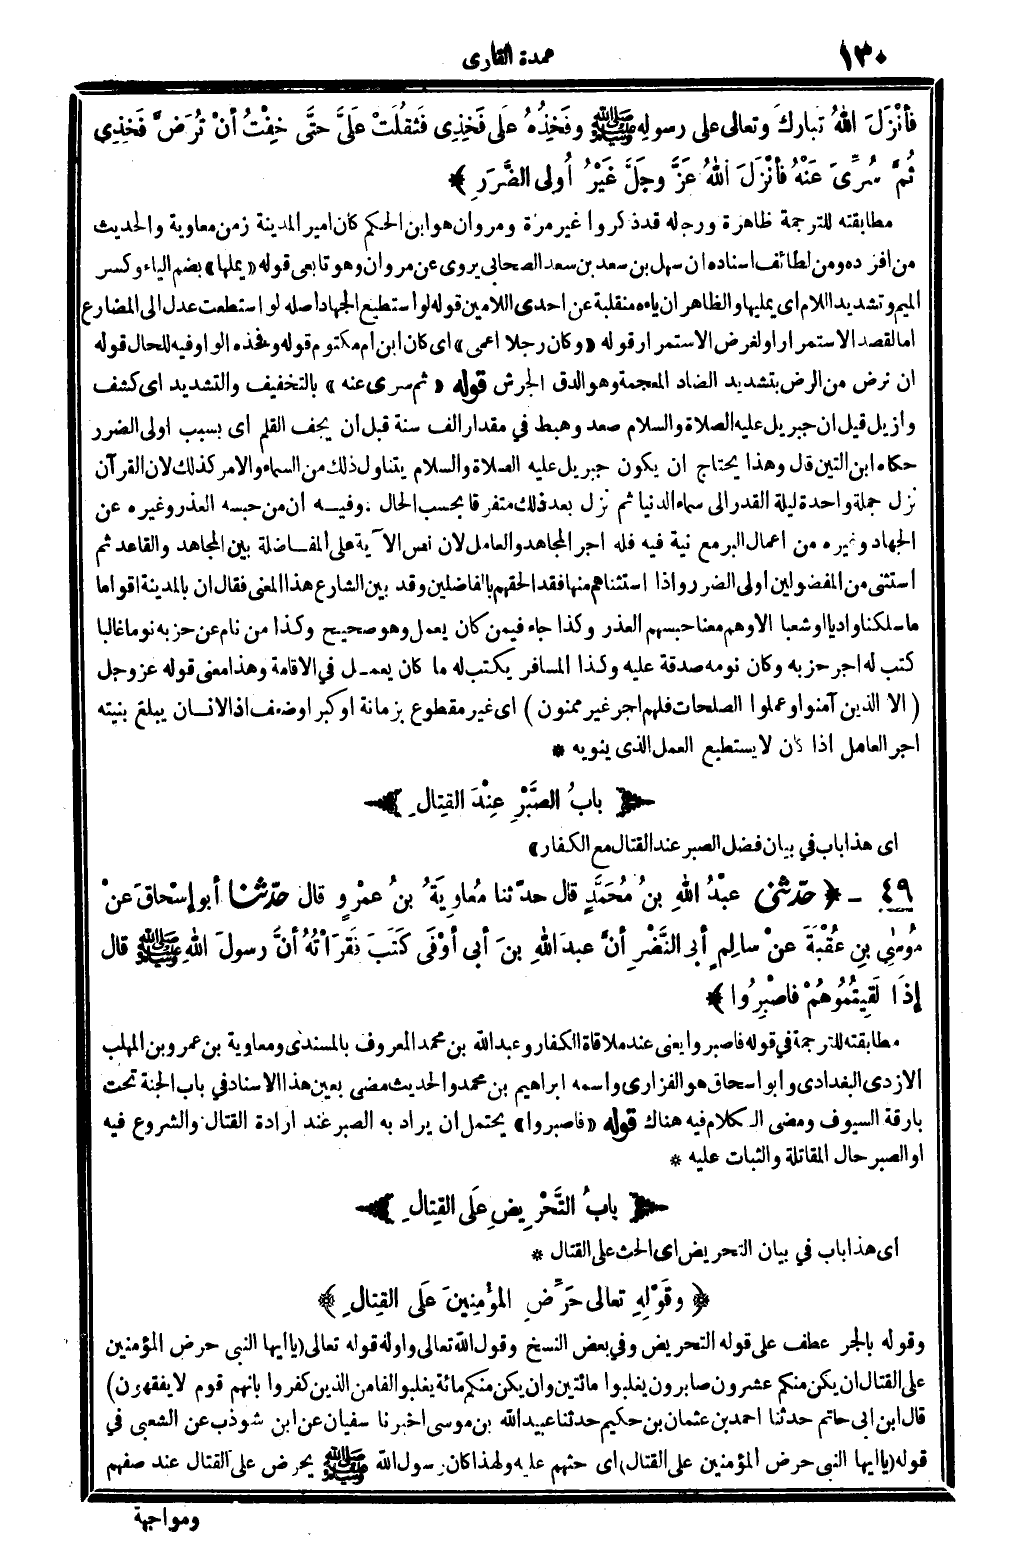 ١٣٠
عمدة القارى
فَأَنْزَلَ اللهُ تبارك وتعالى على رسوله ﷺ وفَخِذُهُ عَلَى فَخِذِى فَثَقُلَتْ عَلَىَّ حتَّى خِفْتُ أنْ تُرَضَّ فَخِذِى
ثُمَّ سُرِّىَ عَنْهُ فأنْزَلَ اللهُ عزَّ وجلَّ غَيْرُ أُولى الضَّرَرِ ﴾
مطابقته للترجمة ظاهرة ورجاله قد ذكروا غير مرة ومروان هو ابن الحكم كان امير المدينة زمن معاوية والحديث
من افراده ومن لطائف اسناده ان سهل بن سعد بن سعد الصحابى يروى عن مروان وهو تابعى قوله «يملها» بضم الياء وكسر
الميم وتشديد اللام اى يمليها والظاهر ان ياءه منقلبة عن احدى اللامين قوله لو استطيع الجهاد اصله لو استطعت عدل الى المضارع
اما لقصد الاستمرار او لغرض الاستمرار قوله «وكان رجلا اعمى» اى كان ابن ام مكتوم قوله وفخذه الواو فيه للحال قوله
ان ترض من الرض بتشديد الضاد المعجمة وهو الدق الجرش قوله «ثم سرى عنه» بالتخفيف والتشديد اى كشف
وازيل قيل ان جبريل عليه الصلاة والسلام صعد وهبط في مقدار الف سنة قبل ان يجف القلم اى بسبب اولى الضرر
حكاه ابن التين قال وهذا يحتاج ان يكون جبريل عليه الصلاة والسلام يتناول ذلك من السماء والامر كذلك لان القرآن
نزل جملة واحدة ليلة القدر الى سماء الدنيا ثم نزل بعد ذلك متفرقا بحسب الحال . وفيه ان من حبسه العذر وغيره عن
الجهاد وغيره من اعمال البر مع نية فيه فله اجر المجاهد والعامل لان نص الآية على المفاضلة بين المجاهد والقاعد ثم
استثنى من المفضولين اولى الضرر واذا استثناهم منها فقد الحقهم بالفاضلين وقد بين الشارع هذا المعنى فقال ان بالمدينة اقواما
ماسلكنا واديا او شعبا الا وهم معنا حبسهم العذر وكذا جاء فيمن كان يعمل وهو صحيح وكذا من نام عن حزبه نوما غالبا
كتب له اجر حزبه وكان نومه صدقة عليه وكذا المسافر يكتب له ما كان يعمل في الاقامة وهذا معنى قوله عز وجل
( الا الذين آمنوا وعملوا الصلحات فلهم اجر غير ممنون ) اى غير مقطوع بزمانة او كبر او ضعف اذ الانسان يبلغ بنيته
اجر العامل اذا كان لا يستطيع العمل الذى ينويه *
﴿ بابُ الصَّبْرِ عِنْدَ القِتالِ ﴾
اى هذا باب في بيان فضل الصبر عند القتال مع الكفار»
٤٩ - ﴿ حدّثنى عبْدُ اللهِ بنُ مُحَمَّدٍ قال حدّثنا مُعاوِيَةُ بنُ عمْرٍو قال حدّثنا أبو إسْحاقَ عنْ
مُوسٰى بنِ عُقْبَةَ عنْ سالِمٍ أبى النَّضْرِ أنَّ عبدَ اللهِ بنَ أبى أوْفَى كَتَبَ فَقَرَأْتُهُ أنَّ رسولَ اللهِ ﷺ قال
إذَا لَقِيتُمُوهُمْ فاصْبِرُوا ﴾
مطابقته للترجمة في قوله فاصبروا يعنى عند ملاقاة الكفار وعبد الله بن محمد المعروف بالمسندى ومعاوية بن عمرو بن المهلب
الازدى البغدادى وابو اسحاق هو الفزارى واسمه ابراهيم بن محمد والحديث مضى بعين هذا الاسناد في باب الجنة تحت
بارقة السيوف ومضى الكلام فيه هناك قوله «فاصبروا» يحتمل ان يراد به الصبر عند ارادة القتال والشروع فيه
او الصبر حال المقاتلة والثبات عليه *
﴿ بابُ التَّحْرِيضِ عَلَى القِتالِ ﴾
اى هذا باب في بيان التحريض اى الحث على القتال *
﴿ وقَوْلِهِ تعالى حَرِّضِ المُؤْمِنِينَ عَلَى القِتالِ ﴾
وقوله بالجر عطف على قوله التحريض وفي بعض النسخ وقول الله تعالى واوله قوله تعالى (يا ايها النبى حرض المؤمنين
على القتال ان يكن منكم عشرون صابرون يغلبوا مائتين وان يكن منكم مائة يغلبوا الفا من الذين كفروا بانهم قوم لا يفقهون)
قال ابن ابى حاتم حدثنا احمد بن عثمان بن حكيم حدثنا عبيد الله بن موسى اخبرنا سفيان عن ابن شوذب عن الشعبى في
قوله (يا ايها النبى حرض المؤمنين على القتال) اى حثهم عليه ولهذا كان رسول الله ﷺ يحرض على القتال عند صفهم
ومواجهة